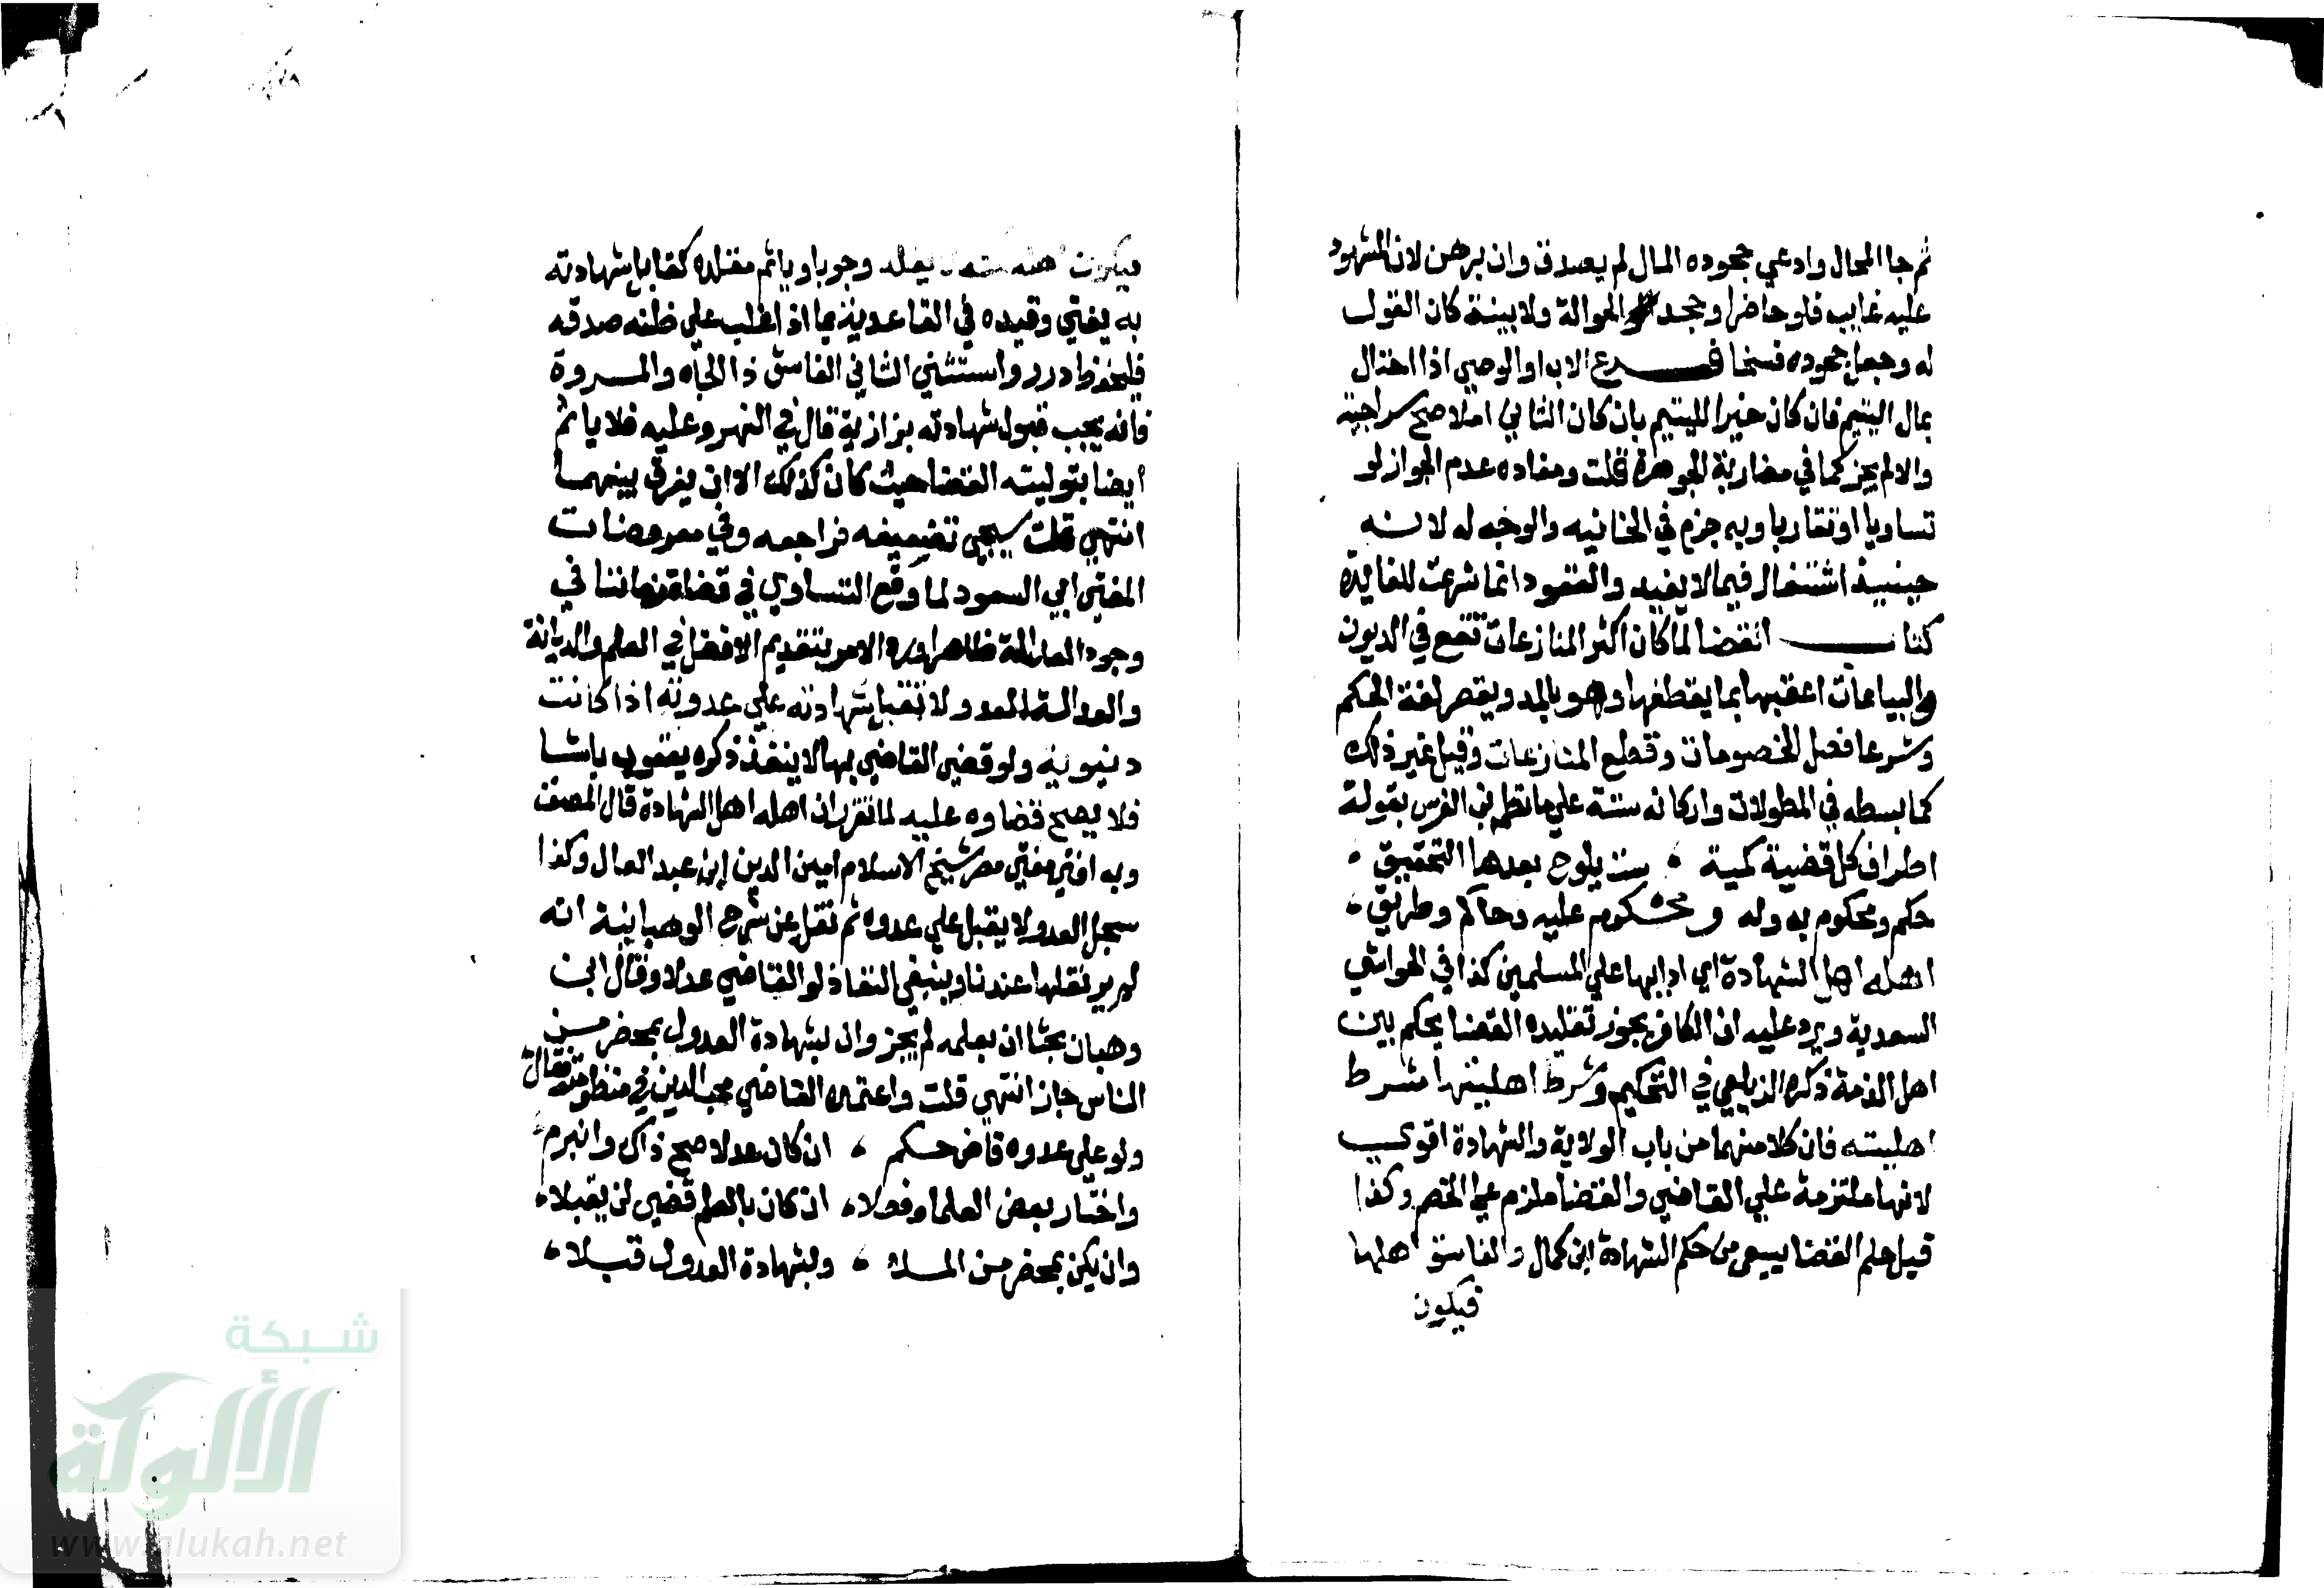 ثم جا المحال وادعي جحوده المال لم يصدق وان برهن لان المشهود
عليه غايب فلو حاضرا وجحد الحوالة ولا بينة كان القول
له وجعل جحوده فسخا فرع الاب او الوصي اذا احتال
بمال اليتيم فان كان خيرا لليتيم بان كان الثاني املا صح سراجية
والا لم يجز كما في مضاربة الجوهرة قلت ومفاده عدم الجواز لو
تساويا او تقاربا وبه جزم في الخانيه والوجه له لانه
حينيذ اشتغال فيما لا يفيد والعقود انما شرعت للفايدة
كتاب القضا لما كان اكثر المنازعات تقع في الديون
والبياعات اعقبها بما يقطعها وهو بالمد ويقصر لغة الحكم
وشرعا فصل الخصومات وقطع المنازعات وقيل غير ذلك
كما بسطه في المطولات واركانه ستة علي ما نظمه ابن الغرس بقوله
اطراف كل قضية حكمية ، ست يلوح بعدها التحقيق ،
حكم ومحكوم به وله ومحكوم عليه وحاكم وطريق ،
اهله اهل الشهادة اي ادايها علي المسلمين كذا في الحواشي
السعدية ويرد عليه ان الكافر يجوز تقليده القضا ليحكم بين
اهل الذمة ذكره الزيلعي في التحكيم وشرط اهليتها شرط
اهليته فان كلا منهما من باب الولاية والشهادة اقوي
لانها ملزمة علي القاضي والقضا ملزم علي الخصم وكذا
قيل حكم القضا يستقي من حكم الشهادة ابن كمال والفاسق اهلها
فيكون
فيكون اهله لكنه لا يقلد وجوبا وياثم مقلده كقابل شهادته
به يفتي وقيده في القاعدية بما اذا غلب علي ظنه صدقه
فليحفظ درر واستثني الثاني الفاسق ذا الجاه والمروة
فانه يجب قبول شهادته بزازية قال في النهر وعليه فلا ياثم
ايضا بتوليته القضا حيث كان كذلك الا ان يفرق بينهما
انتهي قلت سيجي تضعيفه فراجعه وفي معروضات
المفتي ابي السعود لما وقع التساوي في قضاة زماننا في
وجود العدالة ظاهرا ورد الامر بتقديم الافضل في العلم والديانة
والعدالة والعدو لا تقبل شهادته علي عدوته اذا كانت
دنيوية ولو قضي القاضي بها لا ينفذ ذكره يعقوب باشا
فلا يصح قضاوه عليه لما تقرر ان اهله اهل الشهادة قال المصنف
وبه افتي مفتي مصر شيخ الاسلام امين الدين ابن عبد العال وكذا
سجل العدو لا يقبل علي عدوه ثم نقل عن شرح الوهبانية انه
لم ير نقلها عندنا وينبغي النفاذ لو القاضي عدلا وقال ابن
وهبان بحثا ان بعلمه لم يجز وان بشهادة العدول بمحضر من
الناس جاز انتهي قلت واعتمده القاضي محب الدين في منظومته فقال
ولو علي عدوه قاض حكم ، ان كان عدلا صح ذاك وانبرم
واختار بعض العلما وفصلا ، ان كان بالعلم قضي لن يقبلا ،
وان يكن بمحضر من الملا ، وبشهادة العدول قبلا ،
شبكة
الألوكة
www.alukah.net